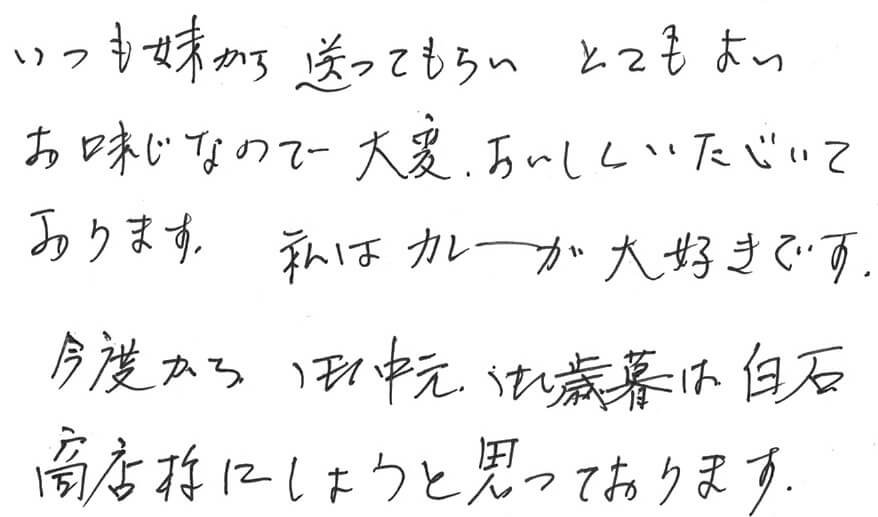 いつも妹から送ってもらい とてもよい
お味じなので大変、おいしくいただいて
おります。 私はカレーが大好きです。
今度から 御中元、御歳暮は白石
商店様にしようと思っております。